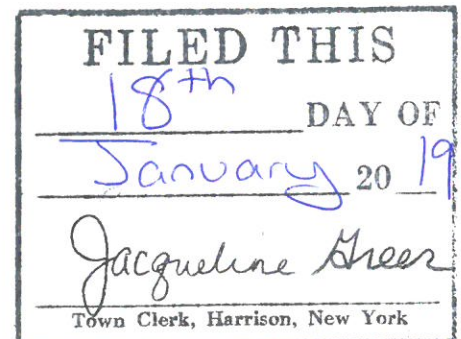 FILED THIS
18th DAY OF
January 20 19
Jacqueline Greer
Town Clerk, Harrison, New York